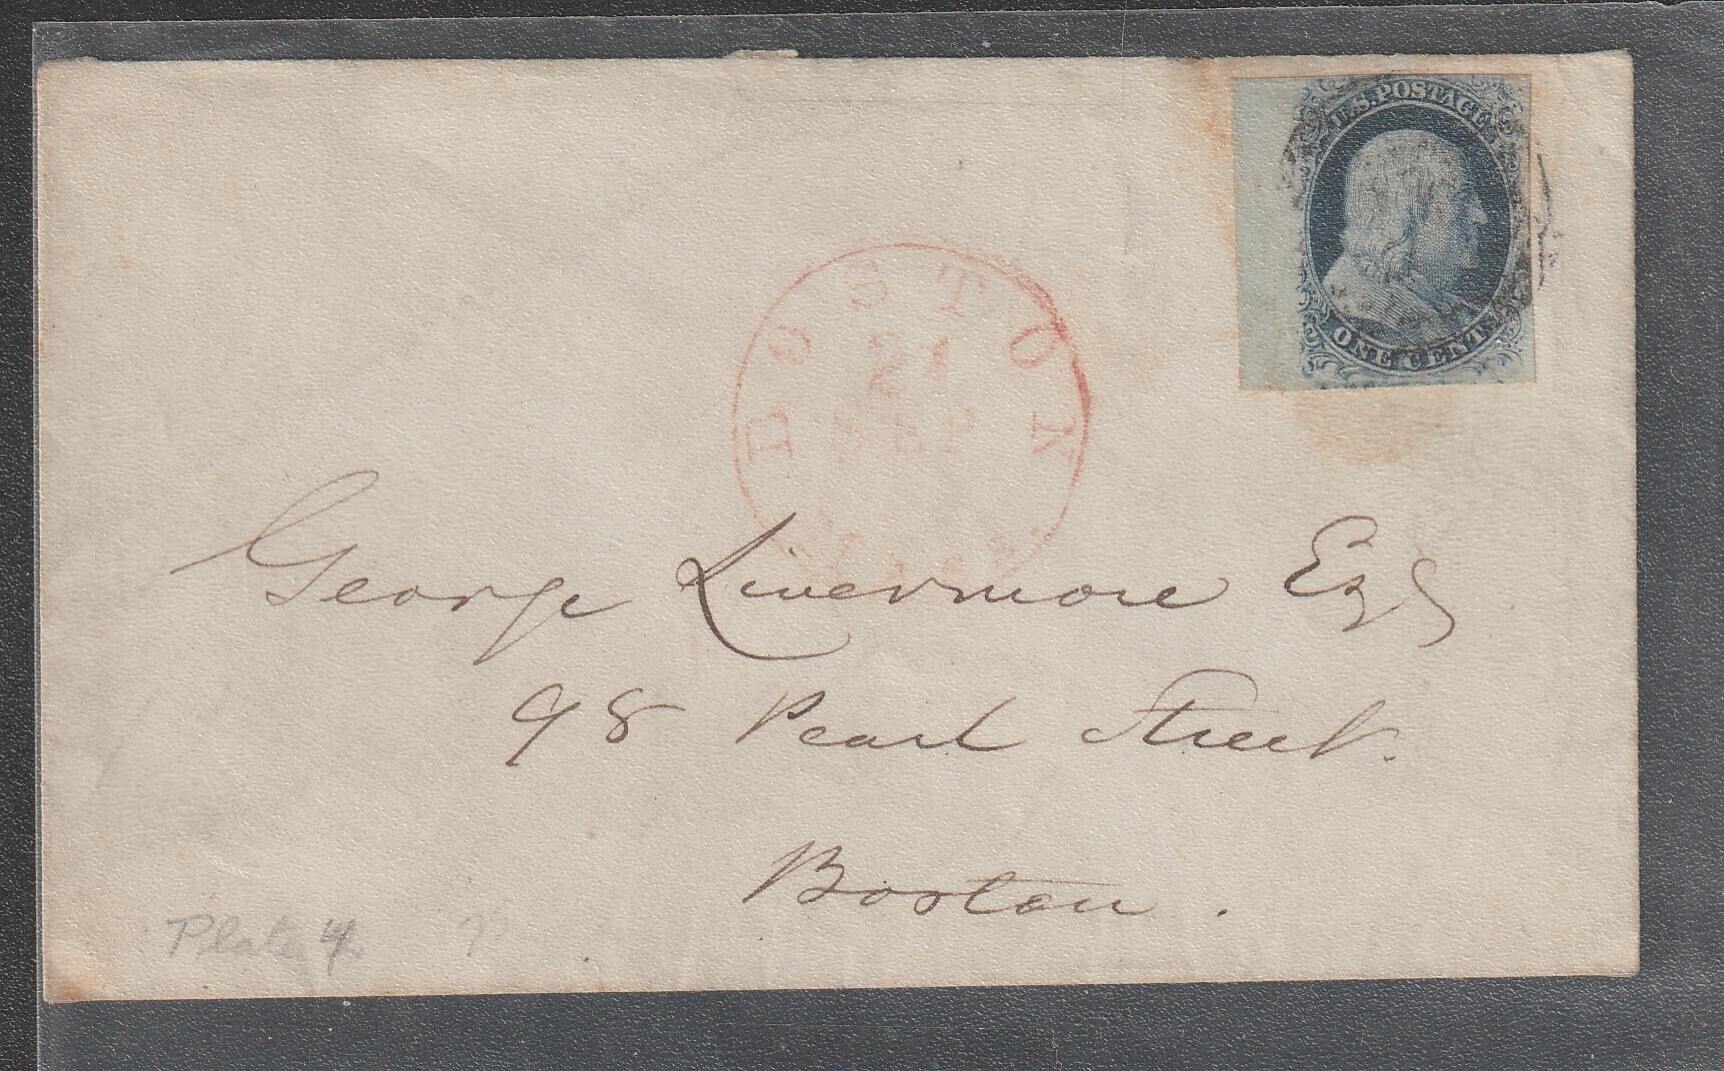 U.S. POSTAGE
ONE CENT
BOSTON
21
SEP
George Livermore Esq
98 Pearl Street.
Boston.
Plate 4